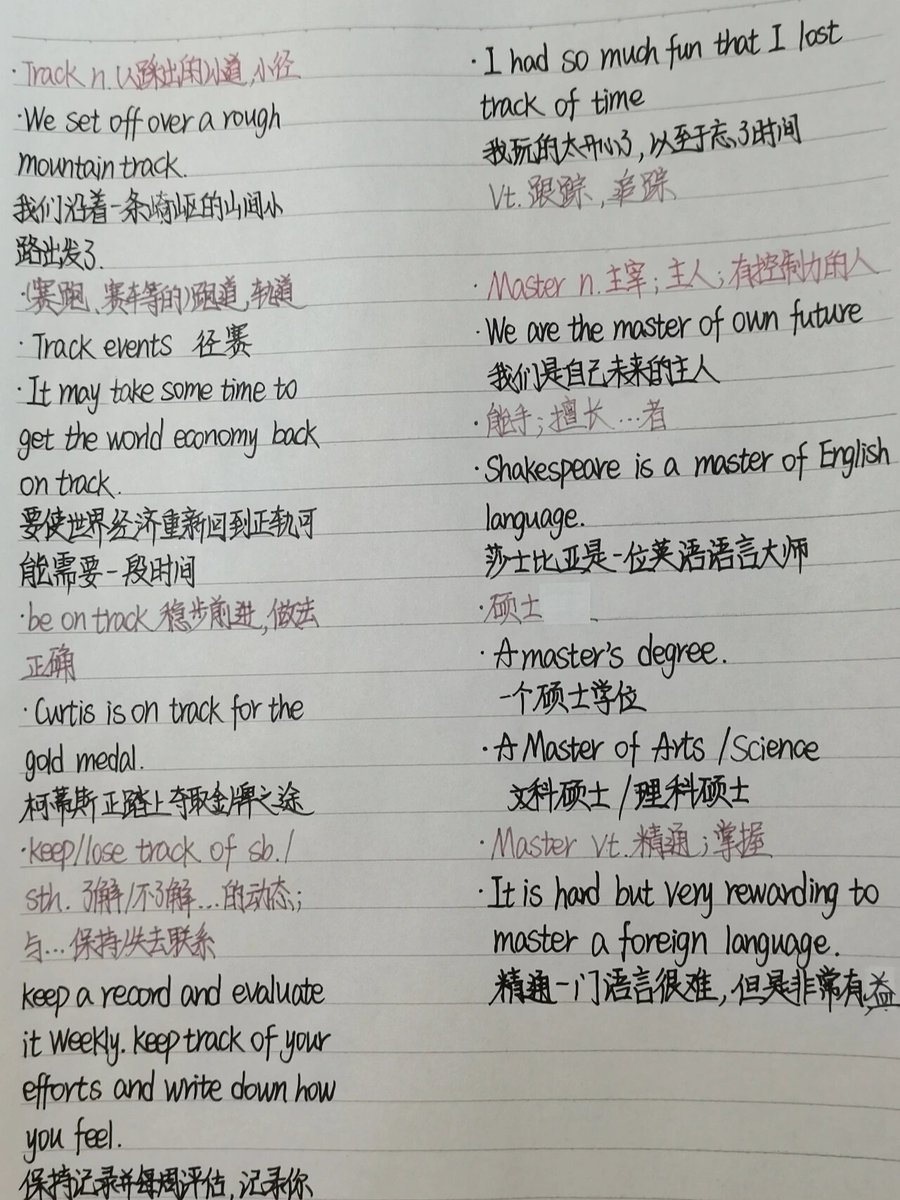 ·Track n.(人踩出的)小道,小径
·We set off over a rough
mountain track.
我们沿着一条崎岖的山间小
路出发了.
·(赛跑、赛车等的)跑道,轨道
·Track events 径赛
·It may take some time to
get the world economy back
on track.
要使世界经济重新回到正轨可
能需要一段时间
·be on track 稳步前进,做法
正确
·Curtis is on track for the
gold medal.
柯蒂斯正踏上夺取金牌之途
·keep/lose track of sb./
sth. 了解/不了解...的动态;
与...保持/失去联系
keep a record and evaluate
it weekly. keep track of your
efforts and write down how
you feel.
保持记录并每周评估,记录你
·I had so much fun that I lost
track of time
我玩的太开心了,以至于忘了时间
Vt. 跟踪,追踪
·Master n.主宰;主人;有控制力的人
·We are the master of own future
我们是自己未来的主人
·能手;擅长...者
·Shakespeare is a master of English
language.
莎士比亚是一位英语语言大师
·硕士
·A master's degree.
一个硕士学位
·A Master of Arts /Science
文科硕士/理科硕士
·Master vt.精通;掌握
·It is hard but very rewarding to
master a foreign language.
精通一门语言很难,但是非常有益